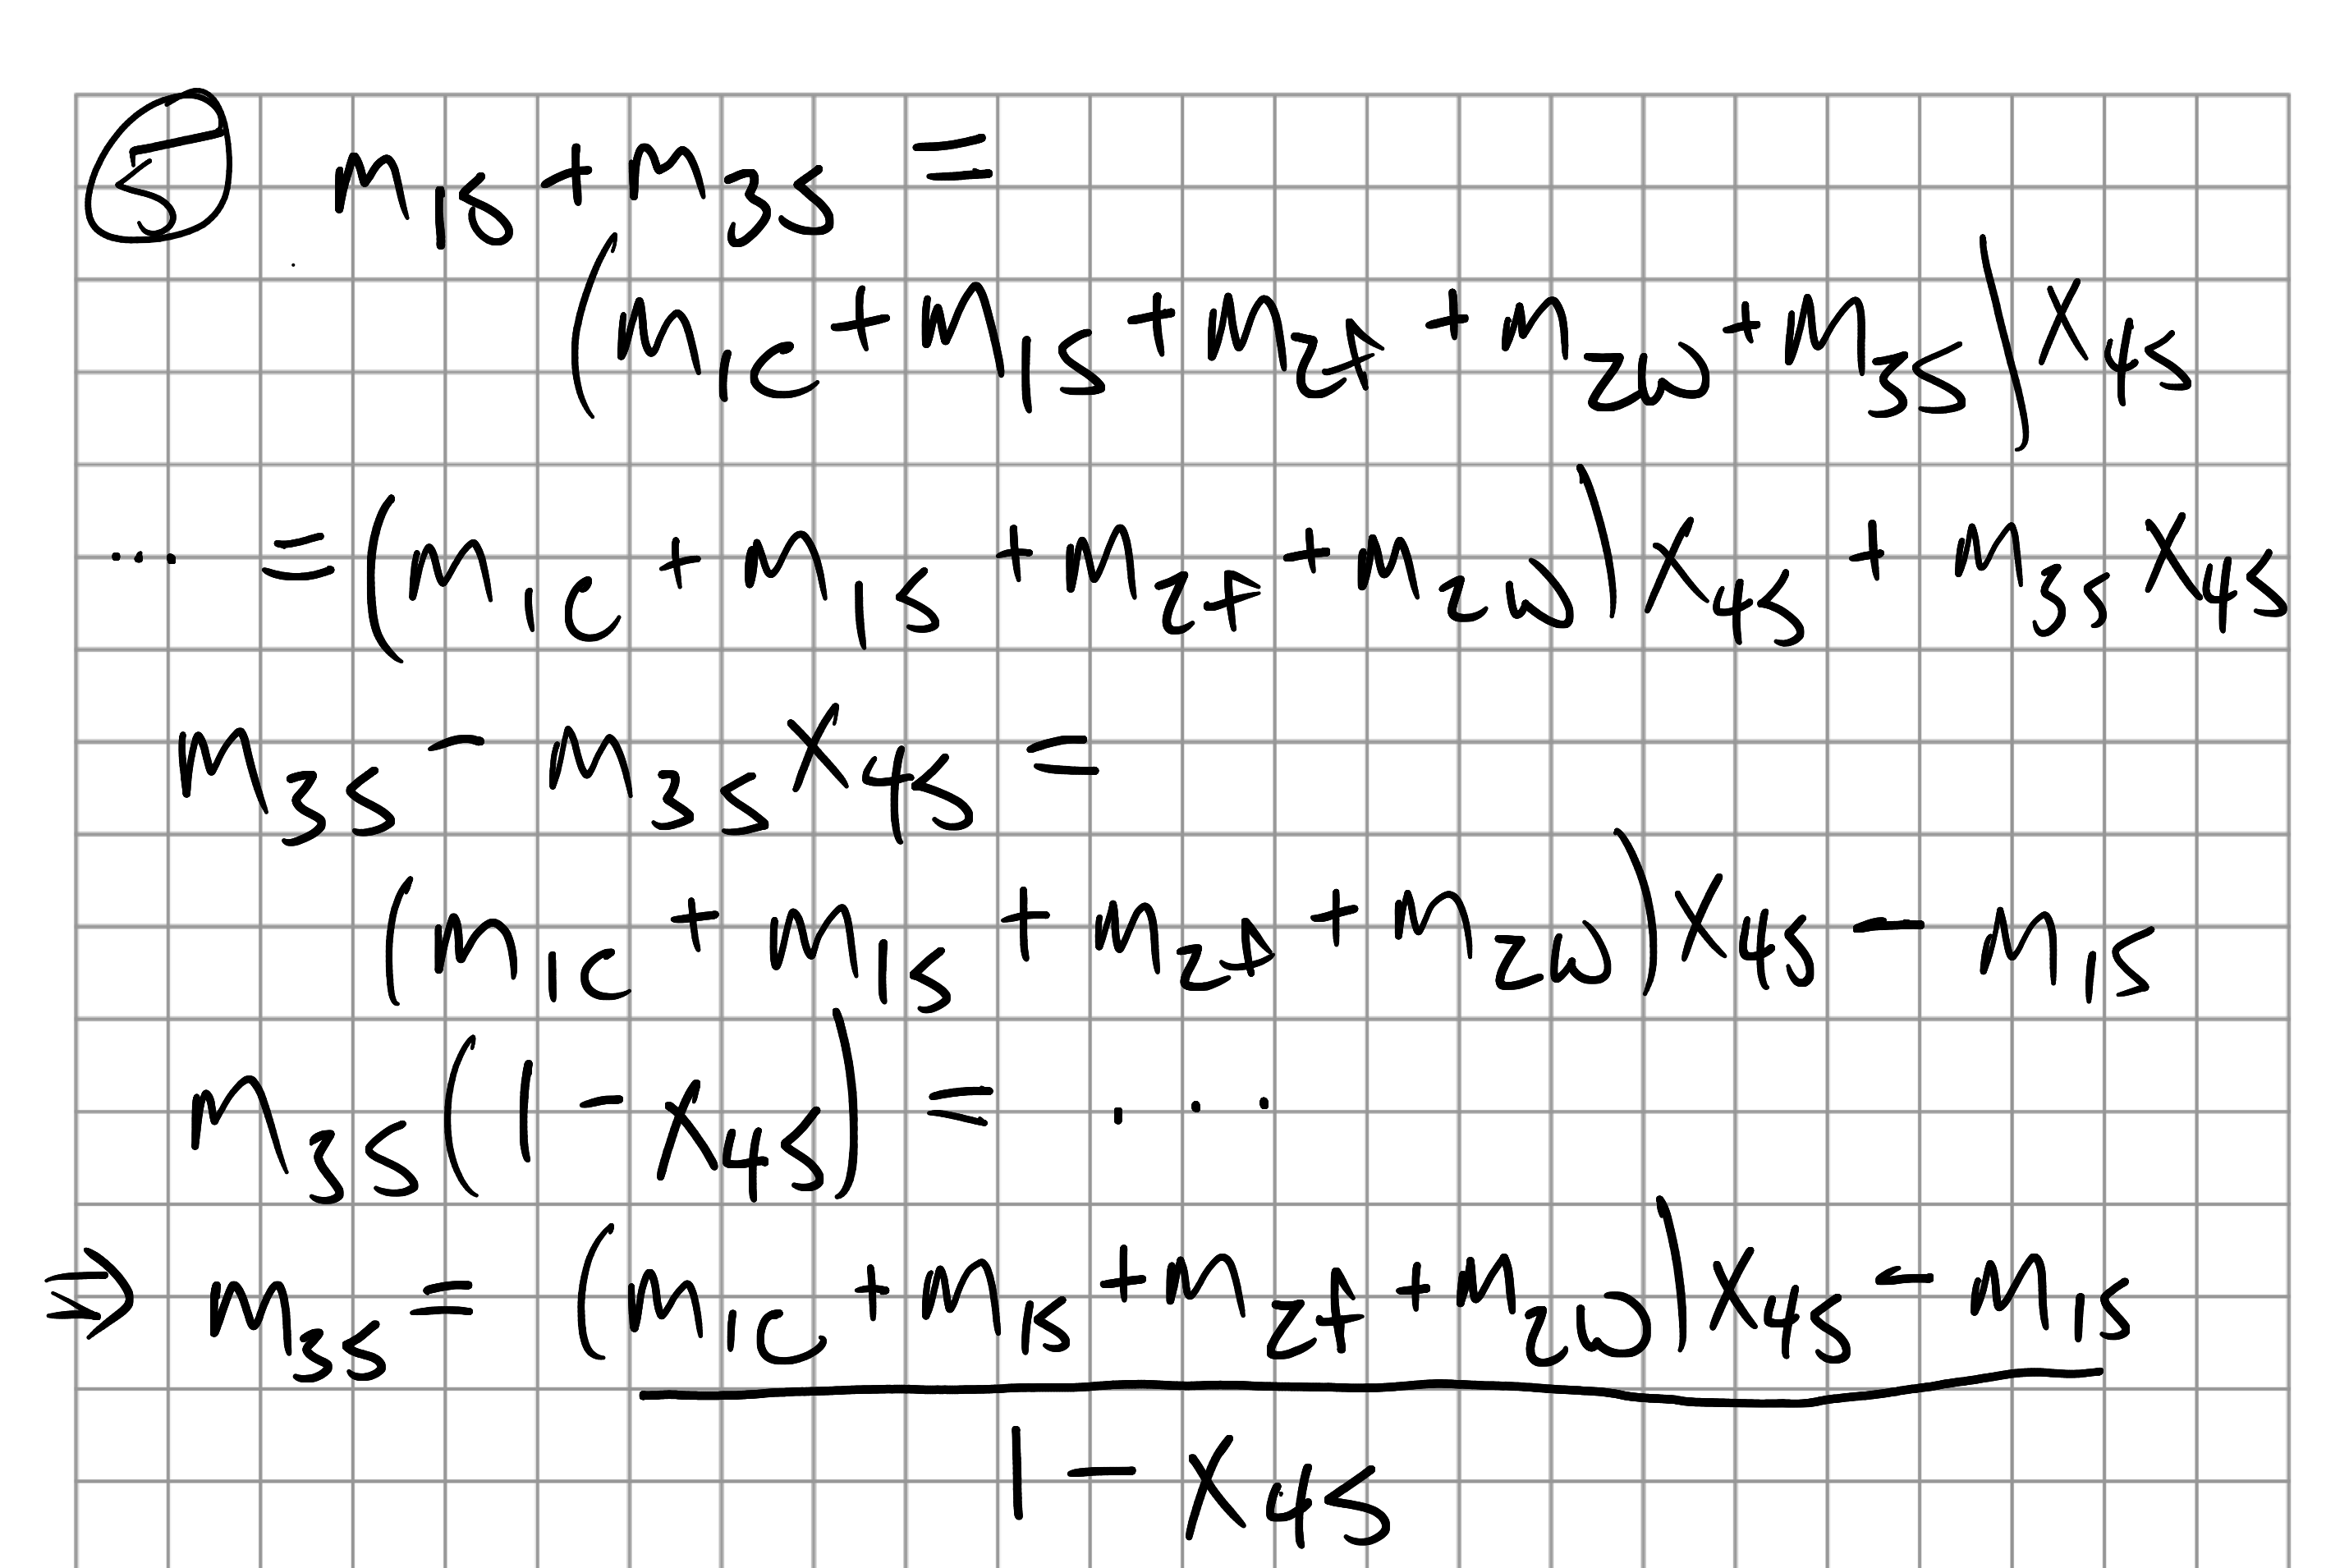 ⑤ m₁ₛ + m₃ₛ =
(m₁c + m₁ₛ + m₂A + m₂w + m₃ₛ) x₄ₛ
... = (m₁c + m₁ₛ + m₂A + m₂w) x₄ₛ + m₃ₛ x₄ₛ
m₃ₛ - m₃ₛ x₄ₛ =
(m₁c + m₁ₛ + m₂A + m₂w) x₄ₛ - m₁ₛ
m₃ₛ (1 - x₄ₛ) = ...
⇒ m₃ₛ = (m₁c + m₁ₛ + m₂A + m₂w) x₄ₛ - m₁ₛ
1 - x₄ₛ